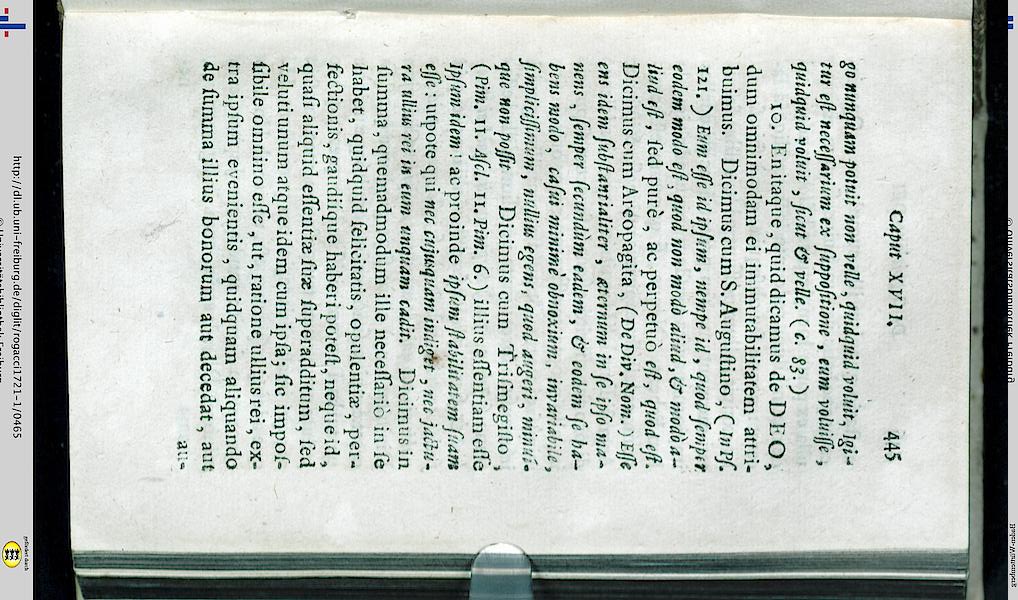 Caput XVII. 445
go nunquam potuit non velle, quidquid voluit, Igi-
tur eſt neceſſarium ex ſuppoſitione, eum voluiſſe,
quidquid voluit, ſicut & velle. (c. 83.)
10. En itaque, quid dicamus de DEO,
dum omnimodam ei immutabilitatem attri-
buimus. Dicimus cum S. Auguſtino, (In Pſ.
121.) Eum eſſe id ipſum, nempe id, quod ſemper
eodem modo eſt, quod non modò aliud, & modò a-
liud eſt, ſed purè, ac perpetuò eſt, quod eſt.
Dicimus cum Areopagita, (De Div. Nom.) Eſſe
ens idem ſubſtantialiter, æternum in ſe ipſo ma-
nens, ſemper ſecundùm eadem, & eodem ſe ha-
bens modo, caſui minimè obnoxium, invariabile,
ſimpliciſſimum, nullius egens, quod augeri, minui-
que non poſſit Dicimus cum Triſmegiſto,
(Pim. 11. Aſcl. 11. Pim. 6.) illius eſſentiam eſſe
Ipſum idem! ac proinde ipſum ſtabilitatem ſuam
eſſe: utpote qui nec cujuſquam indiget, nec jactu-
ra ullius rei in eum unquam cadit. Dicimus in
ſumma, quemadmodum ille neceſſariò in ſe
habet, quidquid felicitatis, opulentiæ, per-
fectionis, gaudiique haberi poteſt, neque id,
quaſi aliquid eſſentiæ ſuæ ſuperadditum, ſed
veluti unum atque idem cum ipſa; ſic impoſ-
ſibile omnino eſſe, ut, ratione ullius rei, ex-
tra ipſum evenientis, quidquam aliquando
de ſumma illius bonorum aut decedat, aut
au-
http://dl.ub.uni-freiburg.de/diglit/rogacci1721-1/0465
gefördert durch